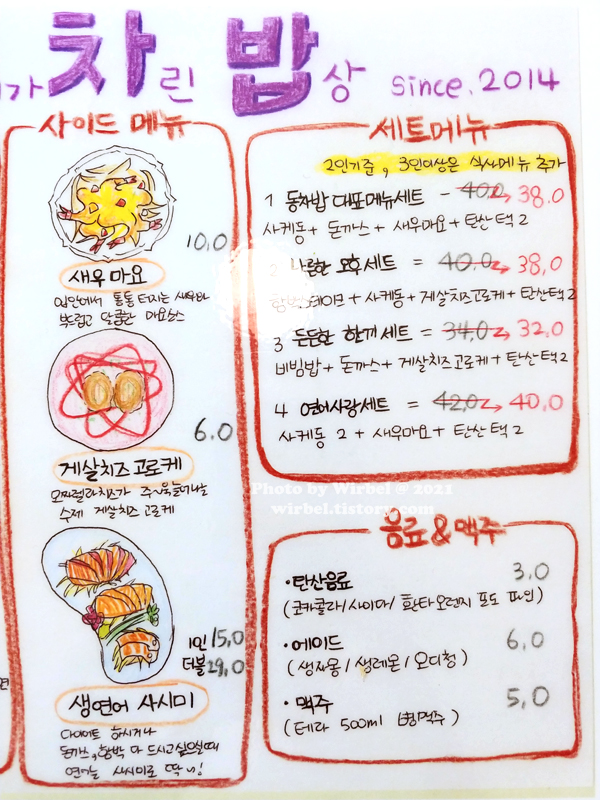 가 차린 밥상 since. 2014
사이드 메뉴
10.0
새우 마요
입안에서 톡톡 터지는 새우와
부드럽고 달콤한 마요소스
6.0
게살치즈 고로케
모짜렐라치즈가 쭈욱 늘어나는
수제 게살치즈 고로케
1인 15.0
더블 29.0
생연어 사시미
다이어트 하시거나
돈까스, 함박 다 드시고 싶으실때
연어는 사시미로 딱 이!
세트메뉴
2인기준, 3인이상은 식사메뉴 추가
1 동차밥 대표메뉴세트 - 40.0 → 38.0
사케동 + 돈까스 + 새우마요 + 탄산 택 2
2 나른한 오후세트 = 40.0 → 38.0
함박스테이크 + 사케동 + 게살치즈고로케 + 탄산택 2
3 든든한 한끼세트 = 34.0 → 32.0
비빔밥 + 돈까스 + 게살치즈고로케 + 탄산택 2
4 연어사랑세트 = 42.0 → 40.0
사케동 2 + 새우마요 + 탄산 택 2
Photo by Wirbel @ 2021
wirbel.tistory.com
음료 & 맥주
· 탄산음료 3.0
(코카콜라/사이다/환타오렌지 포도 파인)
· 에이드 6.0
(생자몽/생레몬/오디청)
· 맥주 5.0
(테라 500ml 병맥주)